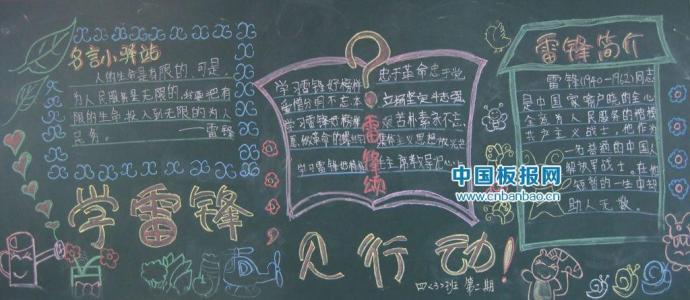 名言小驿站
人的生命是有限的,可是,
为人民服务是无限的,我要把有
限的生命,投入到无限的为人
民服务
——雷锋
学习雷锋好榜样
忠于革命忠于党
爱憎分明不忘本
立场坚定斗志强
学习雷锋好榜样
艰苦朴素永不忘
集体主义思想放光芒
学习雷锋好榜样
雷锋颂
雷锋简介
雷锋(1940-1962)同志
是中国家喻户晓的全心
全意为人民服务的楷模
共产主义战士,他作为
一名普通的中国人
民解放军战士,在他
短暂的一生中却
助人无数。
中国板报网
www.cnbanbao.cn
学雷锋
见行动!
四(3)班 第二期